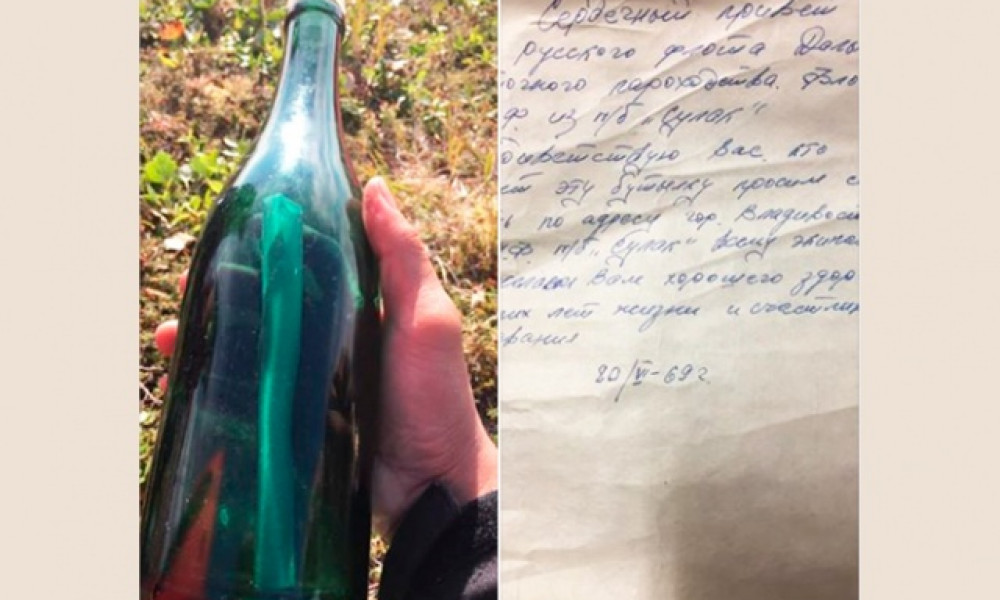 Сердечный привет
русского флота Даль
очного пароходства. Вло
ф из п/б „Сулак"
риветствую Вас кто
ст эту бутылку просим с
ь по адресу гор. Владивост
ф п/б „Сулак" всему экипа
Вам хорошего здор
их лет жизни и счастлив
вания
20/VI-69 г.